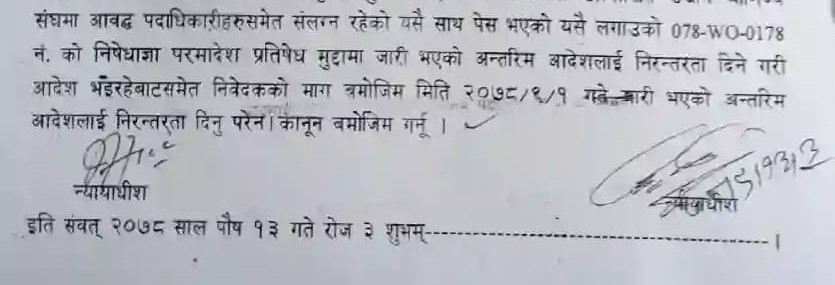 संघमा आवद्ध पदाधिकारीहरुसमेत संलग्न रहेको यसै साथ पेस भएको यसै लगाउको 078-WO-0178
नं. को निषेधाज्ञा परमादेश प्रतिषेध मुद्दामा जारी भएको अन्तरिम आदेशलाई निरन्तरता दिने गरी
आदेश भईरहेबाटसमेत निवेदकको माग बमोजिम मिति २०७८/९/१ गते जारी भएको अन्तरिम
आदेशलाई निरन्तरता दिनु परेन। कानून बमोजिम गर्नू ।
न्यायाधीश
न्यायाधीश
इति संवत् २०७८ साल पौष १३ गते रोज ३ शुभम्---------------------------------------------।